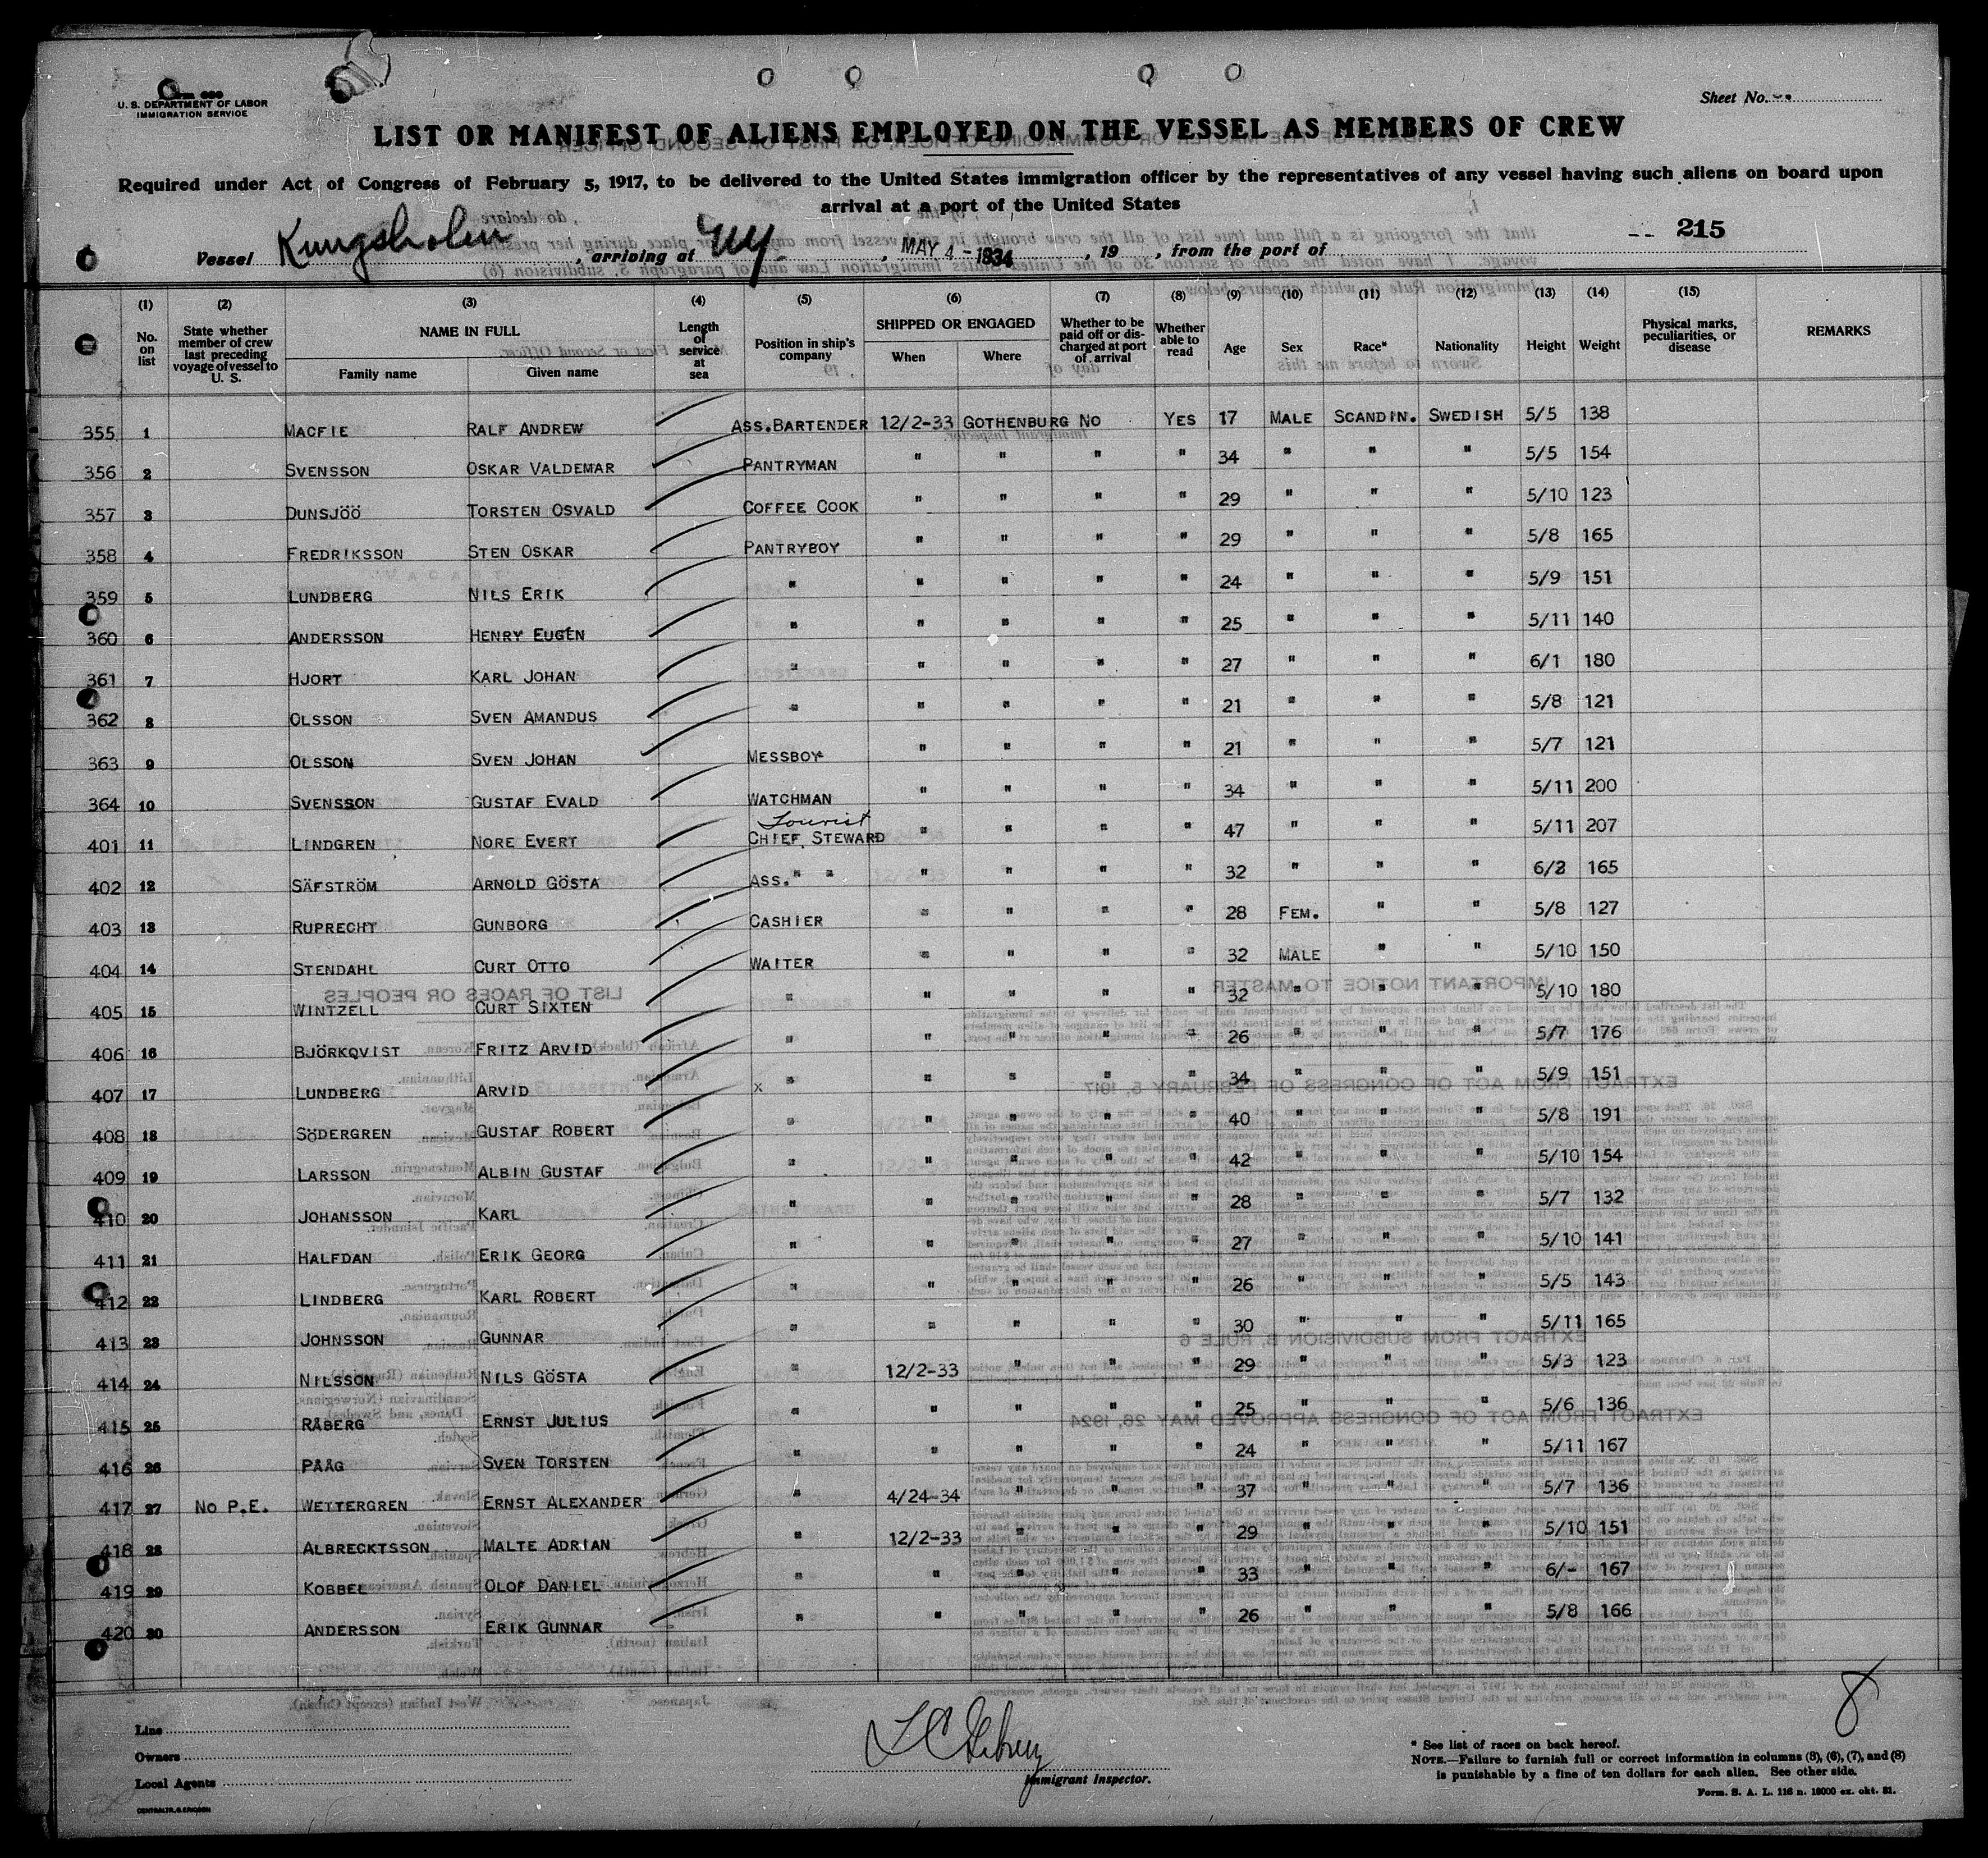 U. S. DEPARTMENT OF LABOR
IMMIGRATION SERVICE
Sheet No.
LIST OR MANIFEST OF ALIENS EMPLOYED ON THE VESSEL AS MEMBERS OF CREW
Required under Act of Congress of February 5, 1917, to be delivered to the United States immigration officer by the representatives of any vessel having such aliens on board upon
arrival at a port of the United States
215
Vessel Kungsholm, arriving at NY., MAY 4 - 1934, 19 , from the port of
(1) (2) (3) (4) (5) (6) (7) (8) (9) (10) (11) (12) (13) (14) (15)
No. on list State whether member of crew last preceding voyage of vessel to U. S. NAME IN FULL Family name Given name Length of service at sea Position in ship's company SHIPPED OR ENGAGED When Where Whether to be paid off or discharged at port of arrival Whether able to read Age Sex Race* Nationality Height Weight Physical marks, peculiarities, or disease REMARKS
355 1 MACFIE RALF ANDREW ASS.BARTENDER 12/2-33 GOTHENBURG NO YES 17 MALE SCANDIN. SWEDISH 5/5 138
356 2 SVENSSON OSKAR VALDEMAR PANTRYMAN " " " " 34 " " " 5/5 154
357 3 DUNSJÖÖ TORSTEN OSVALD COFFEE COOK " " " " 29 " " " 5/10 123
358 4 FREDRIKSSON STEN OSKAR PANTRYBOY " " " " 29 " " " 5/8 165
359 5 LUNDBERG NILS ERIK " " " " " 24 " " " 5/9 151
360 6 ANDERSSON HENRY EUGEN " " " " " 25 " " " 5/11 140
361 7 HJORT KARL JOHAN " " " " " 27 " " " 6/1 180
362 8 OLSSON SVEN AMANDUS " " " " " 21 " " " 5/8 121
363 9 OLSSON SVEN JOHAN MESSBOY " " " " 21 " " " 5/7 121
364 10 SVENSSON GUSTAF EVALD WATCHMAN " " " " 34 " " " 5/11 200
Tourist
401 11 LINDGREN NORE EVERT CHIEF STEWARD " " " " 47 " " " 5/11 207
402 12 SÄFSTRÖM ARNOLD GÖSTA ASS. " " " " " " 32 " " " 165
403 13 RUPRECHT GUNBORG CASHIER " " " " 28 FEM. " " 5/8 127
404 14 STENDAHL CURT OTTO WAITER " " " " 32 MALE " " 5/10 150
405 15 WINTZELL CURT SIXTEN " " " " " 32 " " " 5/10 180
406 16 BJÖRKQVIST FRITZ ARVID " " " " " 26 " " " 5/7 176
407 17 LUNDBERG ARVID x " " " " " 34 " " " 5/9 151
408 18 SÖDERGREN GUSTAF ROBERT " " " " " 40 " " " 5/8 191
409 19 LARSSON ALBIN GUSTAF " " " " " 42 " " " 5/10 154
410 20 JOHANSSON KARL " " " " " 28 " " " 5/7 132
411 21 HALFDAN ERIK GEORG " " " " " 27 " " " 5/10 141
412 22 LINDBERG KARL ROBERT " " " " " 26 " " " 5/5 143
413 23 JOHNSSON GUNNAR " " " " " 30 " " " 5/11 165
414 24 NILSSON NILS GÖSTA " 12/2-33 " " " 29 " " " 5/3 123
415 25 RÅBERG ERNST JULIUS " " " " " 25 " " " 5/6 136
416 26 PÅÅG SVEN TORSTEN " " " " " 24 " " " 5/11 167
417 27 NO P.E. WETTERGREN ERNST ALEXANDER " 4/24-34 " " " 37 " " " 5/7 136
418 28 ALBRECKTSSON MALTE ADRIAN " 12/2-33 " " " 29 " " " 5/10 151
419 29 KOBBEL OLOF DANIEL " " " " " 33 " " " 6/- 167
420 30 ANDERSSON ERIK GUNNAR " " " " " 26 " " " 5/8 166
8
Line
Owners
Local Agents
Immigrant Inspector.
* See list of races on back hereof.
NOTE.—Failure to furnish full or correct information in columns (3), (6), (7), and (8)
is punishable by a fine of ten dollars for each alien. See other side.
Form. S. A. L. 116 n. 16000 ex. okt. 31.
CENTRALTR. G. ERICSON